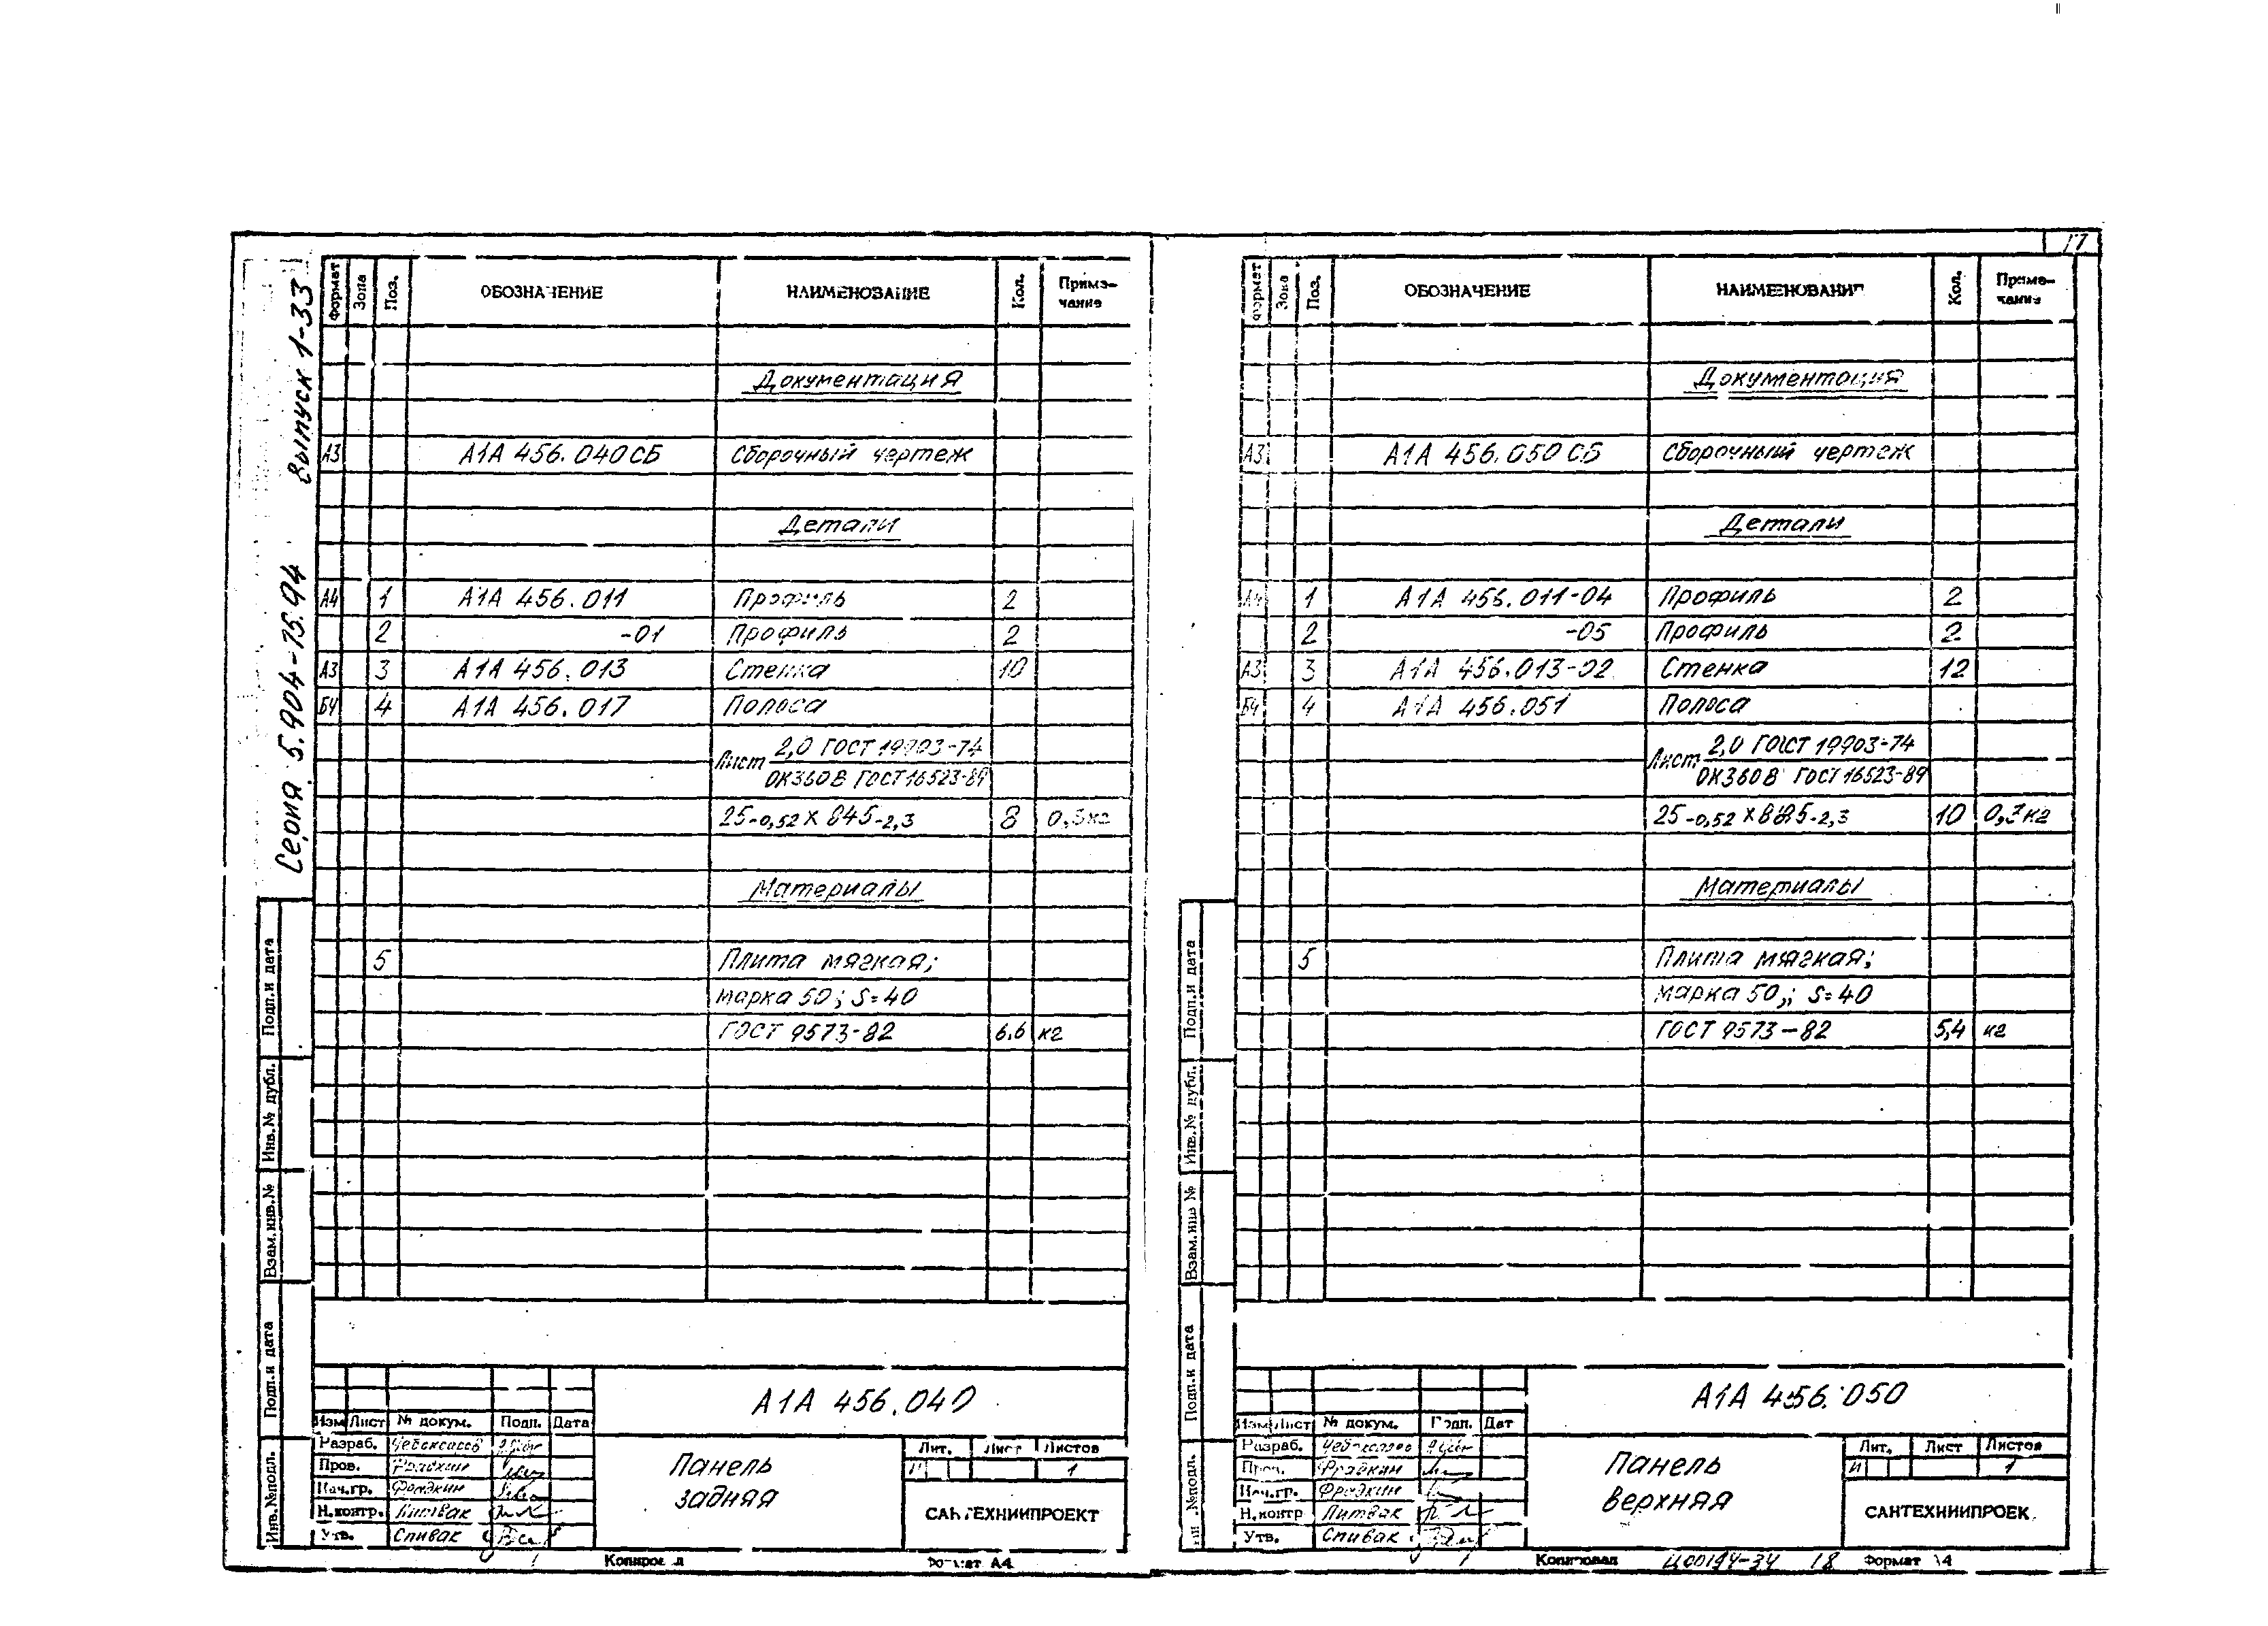 17
Серия 5.904-75.94 Выпуск 1-33
Формат Зона Поз. ОБОЗНАЧЕНИЕ НАИМЕНОВАНИЕ Кол. Приме-
чание
Документация
А3 А1А 456.040СБ Сборочный чертеж
Детали
А4 1 А1А 456.011 Профиль 2
2 -01 Профиль 2
А3 3 А1А 456.013 Стенка 10
БЧ 4 А1А 456.017 Полоса
Лист 2,0 ГОСТ 19903-74
ОК360В ГОСТ 16523-89
25-0,52 х 845-2,3 8 0,3кг
Материалы
5 Плита мягкая;
марка 50; S=40
ГОСТ 9573-82 6,6 кг
Подп.и дата
Инв.№ дубл.
Взам.инв.№
Подп.и дата
Инв.№подл.
А1А 456.040
Изм Лист № докум. Подп. Дата
Разраб. Чебоксаров
Пров. Фрадкин
Нач.гр. Фрадкин
Н.контр. Литвак
Утв. Спивак
Панель
задняя
Лит. Лист Листов
И 1
САНТЕХНИИПРОЕКТ
Копировал Формат А4
Формат Зона Поз. ОБОЗНАЧЕНИЕ НАИМЕНОВАНИЕ Кол. Приме-
чание
Документация
А3 А1А 456.050СБ Сборочный чертеж
Детали
А4 1 А1А 456.011-04 Профиль 2
2 -05 Профиль 2
А3 3 А1А 456.013-02 Стенка 12
БЧ 4 А1А 456.051 Полоса
Лист 2,0 ГОСТ 19903-74
ОК360В ГОСТ 16523-89
25-0,52 х 885-2,3 10 0,3кг
Материалы
5 Плита мягкая;
марка 50; S=40
ГОСТ 9573-82 5,4 кг
Подп.и дата
Инв.№ дубл.
Взам.инв №
Подп.и дата
№подл.
А1А 456.050
Изм Лист № докум. Подп. Дат
Разраб. Чебоксаров
Пров. Фрадкин
Нач.гр. Фрадкин
Н.контр Литвак
Утв. Спивак
Панель
верхняя
Лит. Лист Листов
И 1
САНТЕХНИИПРОЕК
Копировал Ц00194-34 18 Формат А4